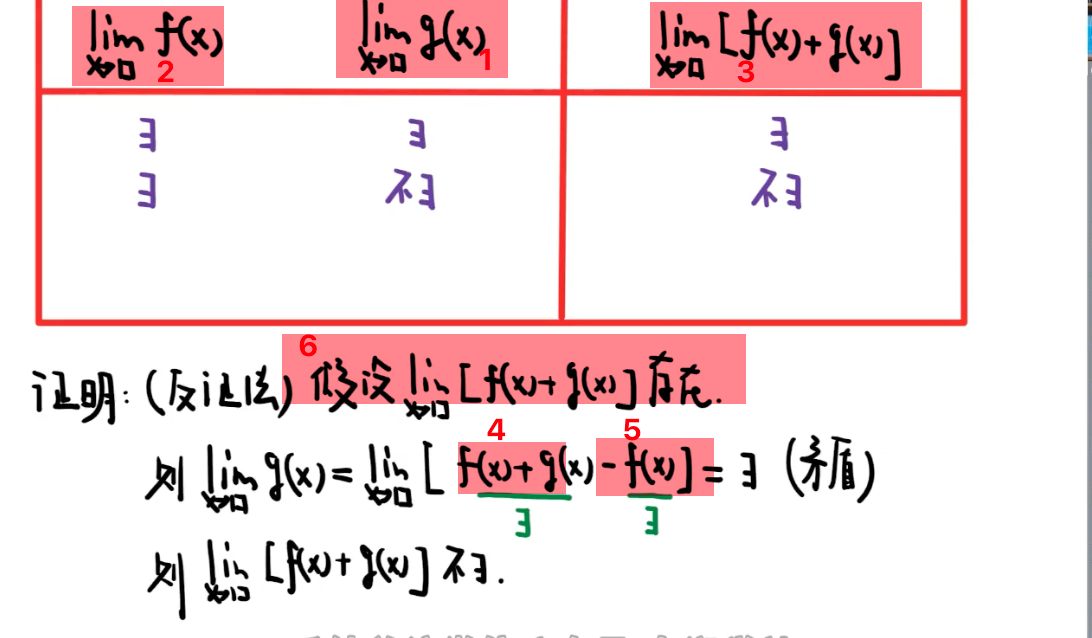 lim x→□ f(x) 2 lim x→□ g(x) 1 lim x→□ [f(x)+g(x)] 3
∃ ∃ ∃
∃ 不∃ 不∃
6
证明:(反证法)假设 lim x→□ [f(x)+g(x)]存在.
4 5
则 lim x→□ g(x)= lim x→□ [f(x)+g(x)-f(x)]=∃ (矛盾)
∃ ∃
则 lim x→□ [f(x)+g(x)]不∃.